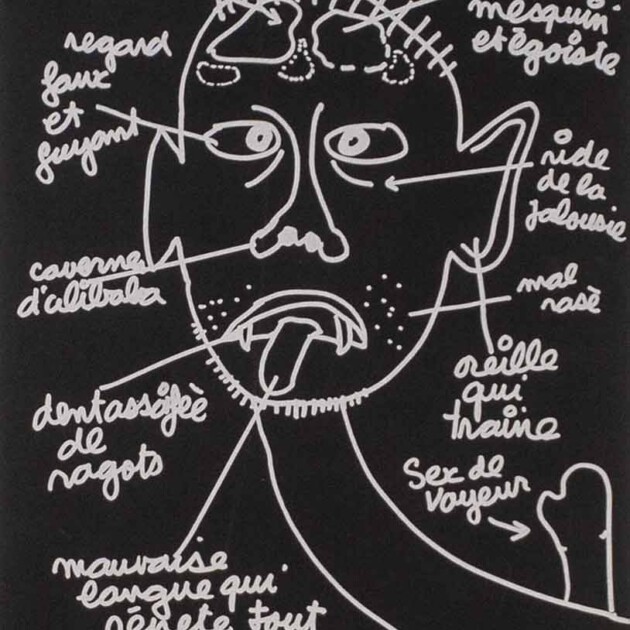 mesquin
et égoïste
regard
faux
et
fuyant
ride
de la
jalousie
caverne
d'alibaba
mal
rasè
oreille
qui
traine
dent assoifèè
de
ragots
Sex de
voyeur
mauvaise
langue qui
répète tout